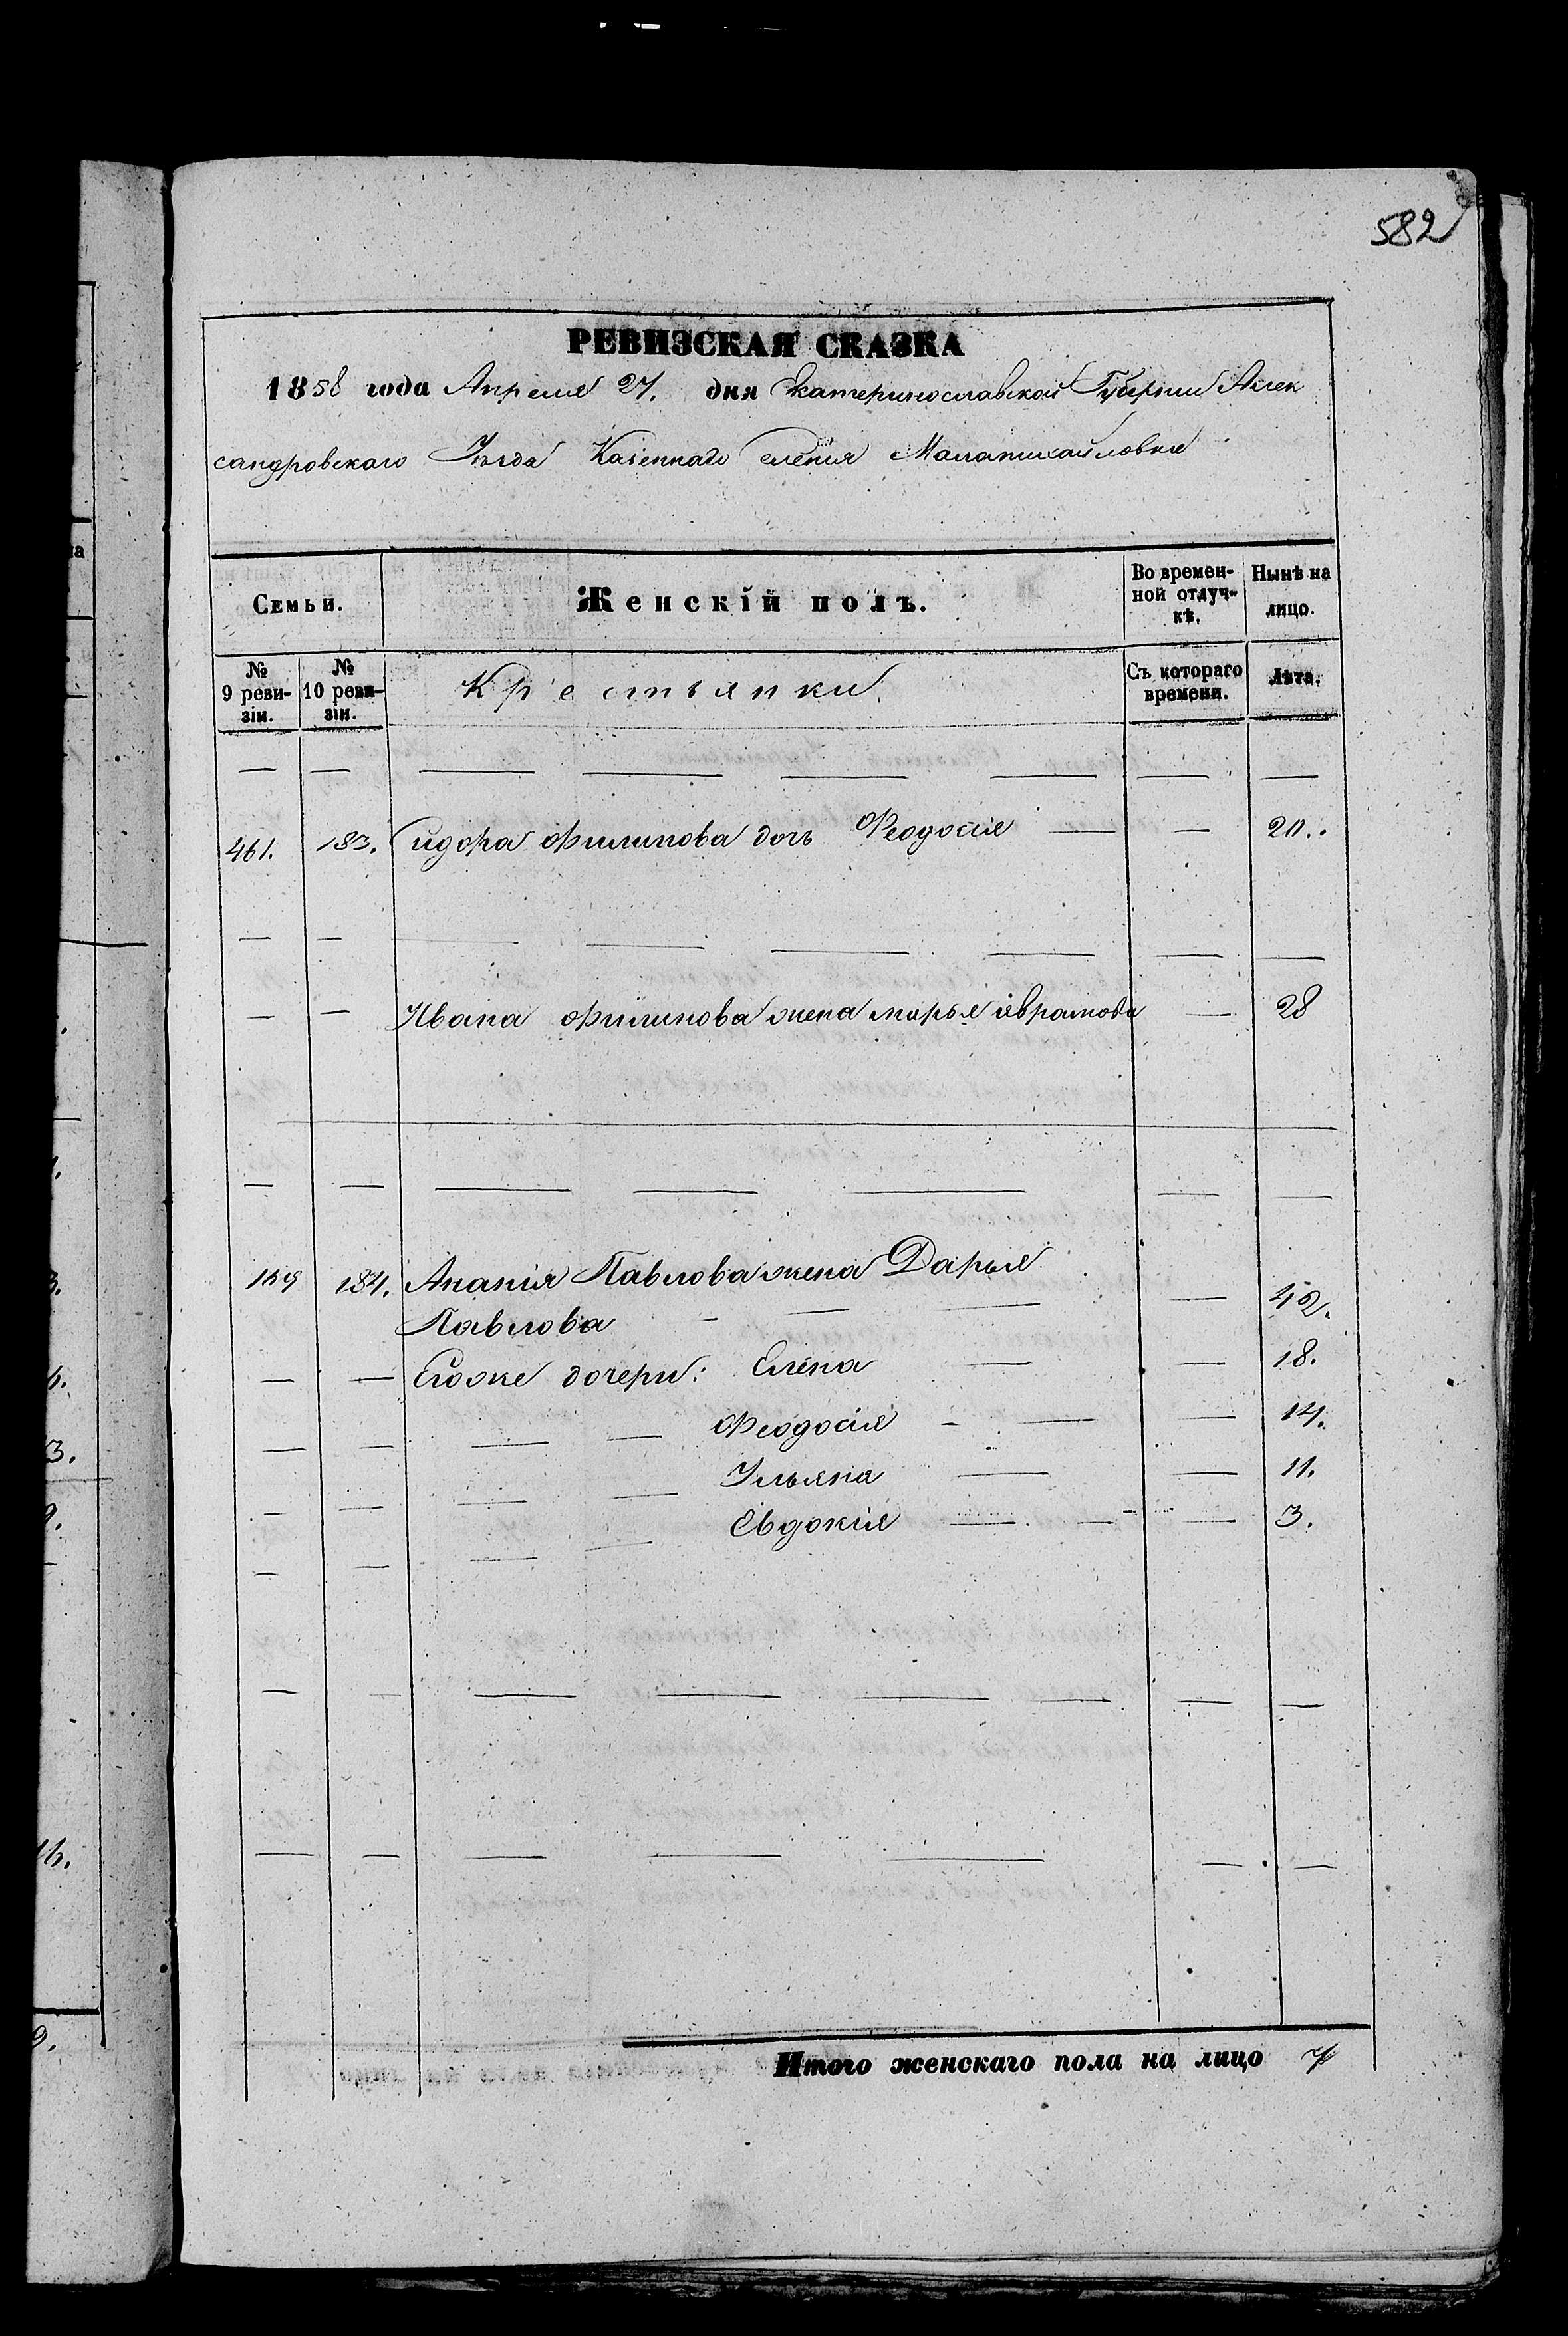 582
РЕВИЗСКАЯ СКАЗКА
1858 года Апреля 27. дня Екатеринославской Губерніи Алек
сандровскаго Уезда Казеннаго селенія Маломихайловки
Семьи.
Женскій полъ.
Во времен-
ной отлуч-
кѣ.
Нынѣ на
лицо.
№
9 реви-
зіи.
№
10 реви-
зіи.
Крестьянки
Съ котораго
времени.
Лѣта.
461. 183. Сидора Филипова дочь Феодосія — — 20.
— — Ивана Филипова жена марья іаврамова — 28
159 184. Ананія Павлова жена Дарья
Павлова — — — — 42.
— — Егоже дочери: Елена — — 18.
— — — — Феодосія — — — 14.
— — — — Ульяна — — 11.
— — — — Евдокія — — — 3.
Итого женскаго пола на лицо 7